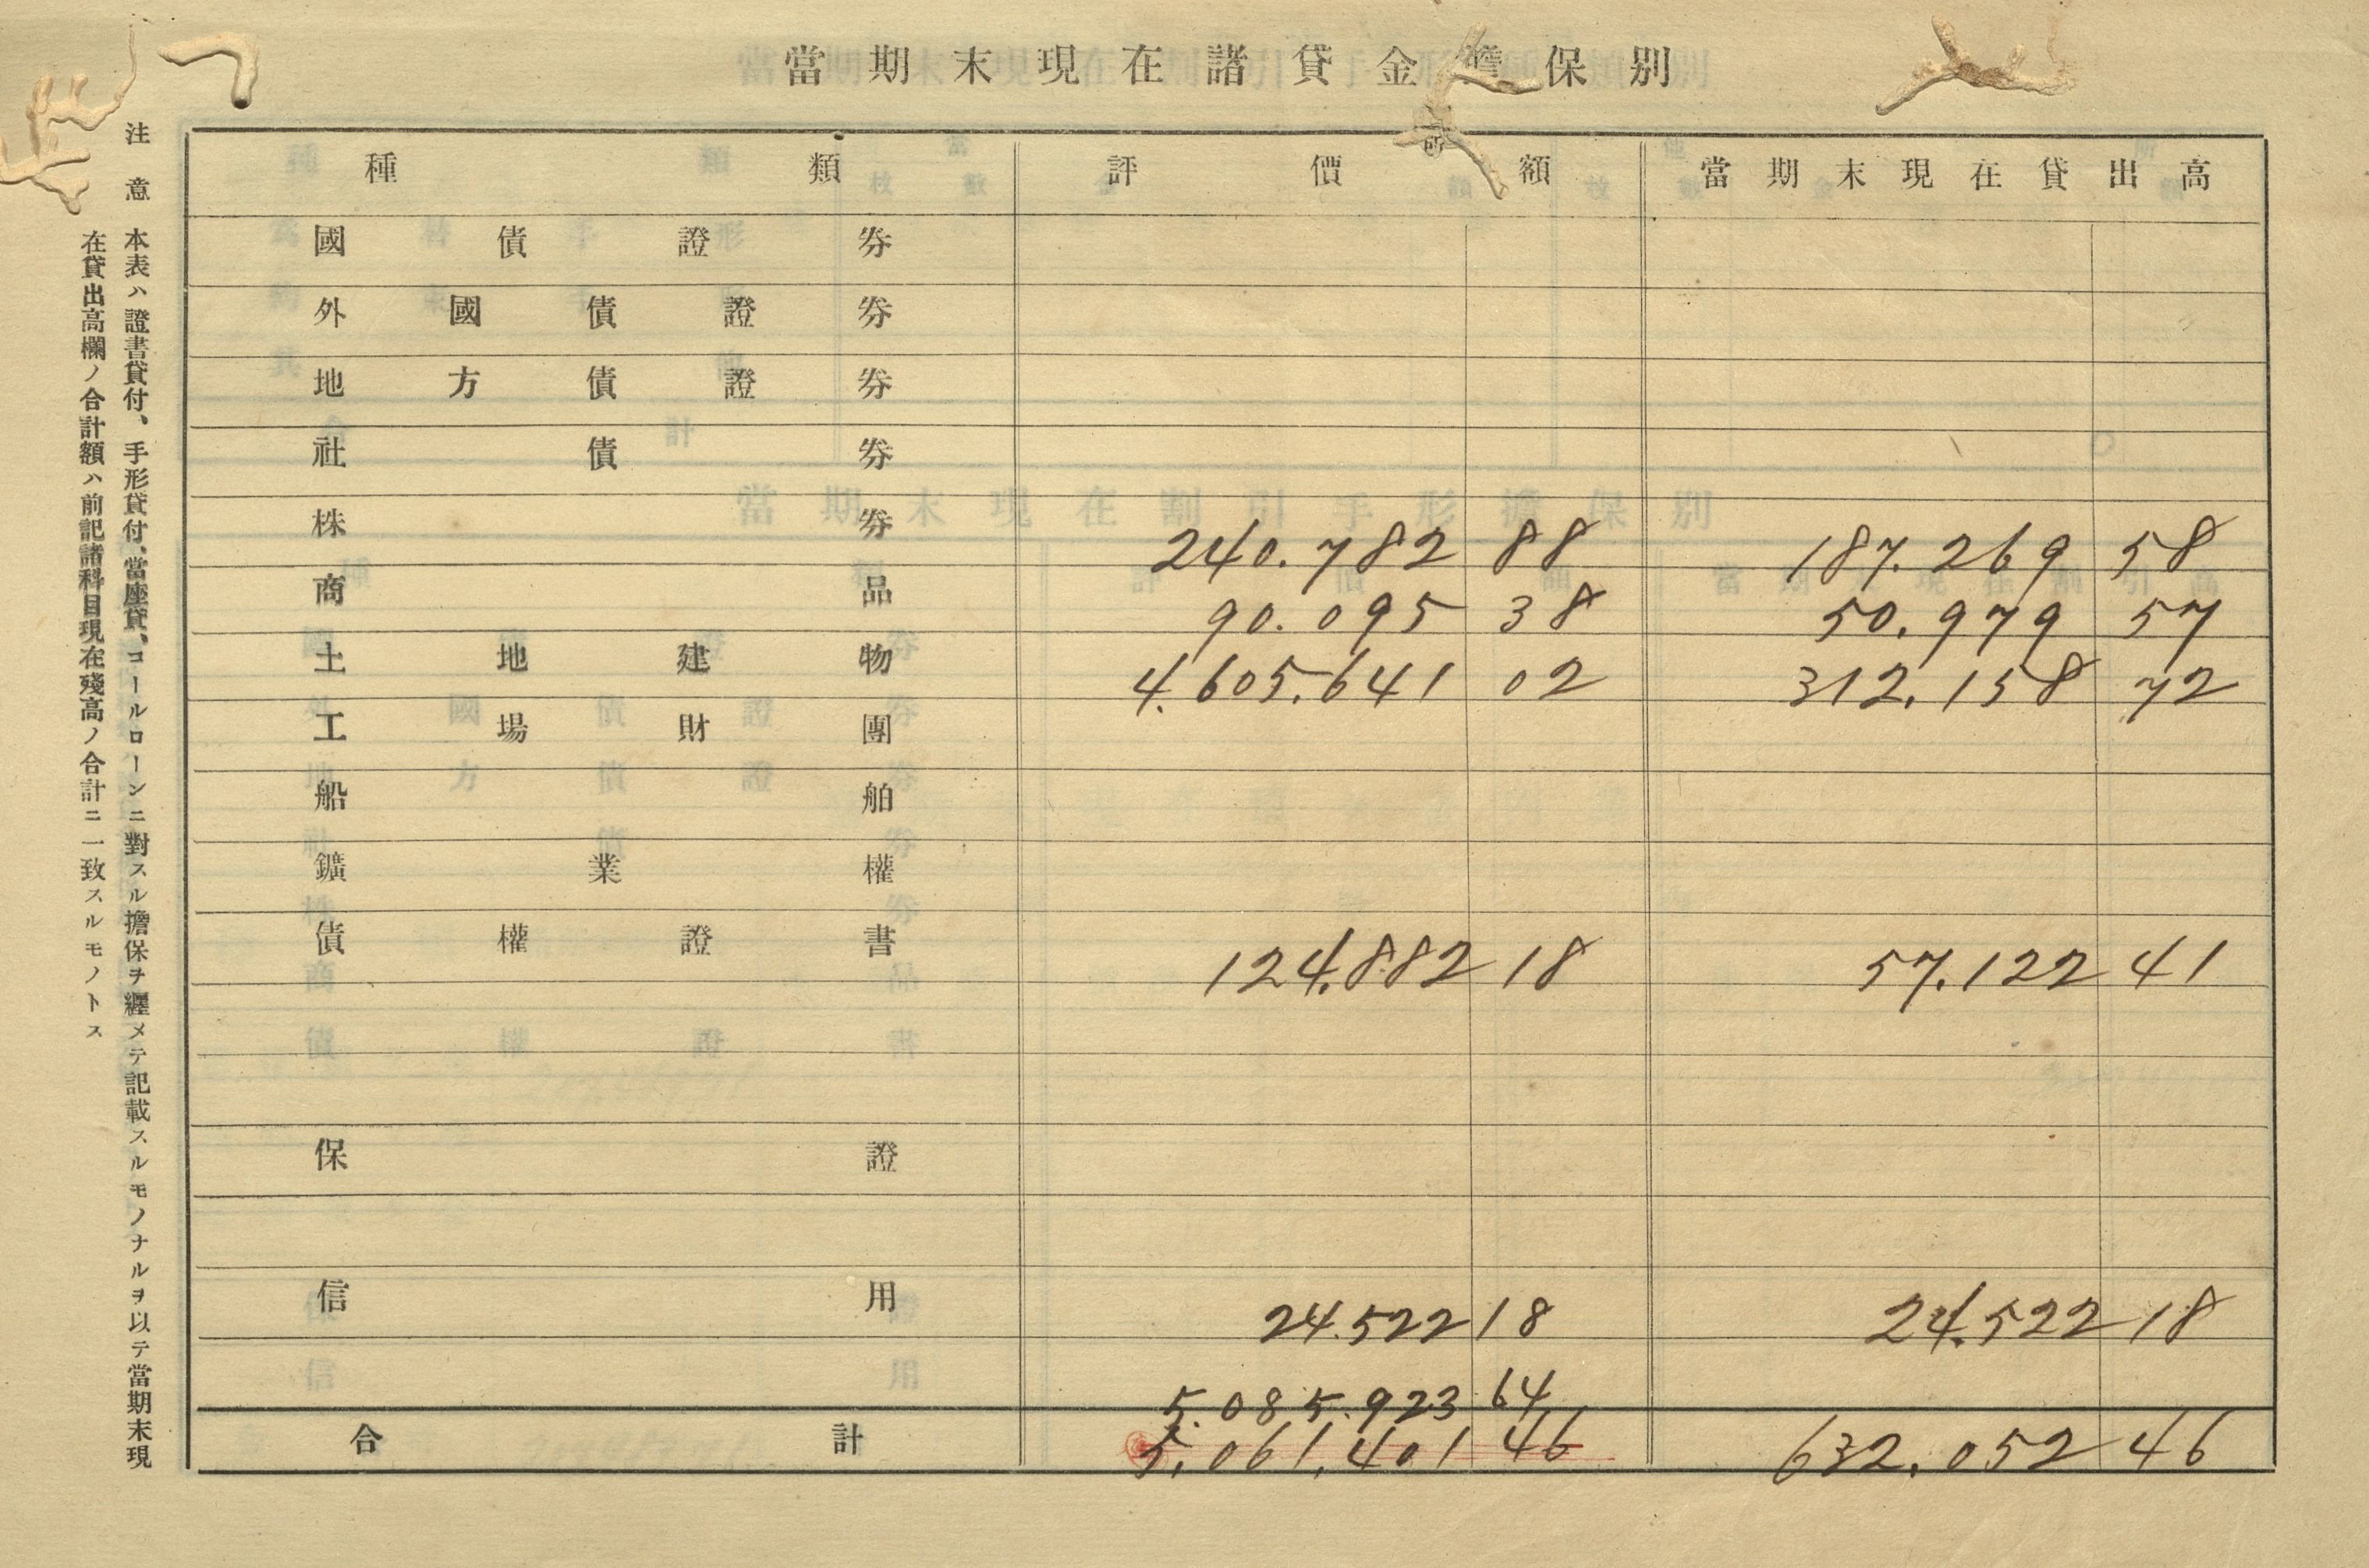 當期末現在諸貸金擔保別
種類 評價額 當期末現在貸出高
國債證券
外國債證券
地方債證券
社債券
株券 240.782 88 187.269 58
商品 90.095 38 50.979 57
土地建物 4.605.641 02 312.158 72
工場財團
船舶
鑛業權
債權證書 124.882 18 57.122 41
保證
信用 24.522 18 24.522 18
5.085.923 64
合計 5.061.401 46 632.052 46
注意 本表ハ證書貸付、手形貸付、當座貸、コールローンニ對スル擔保ヲ纒メテ記載スルモノナルヲ以テ當期末現
在貸出高欄ノ合計額ハ前記諸科目現在殘高ノ合計ニ一致スルモノトス